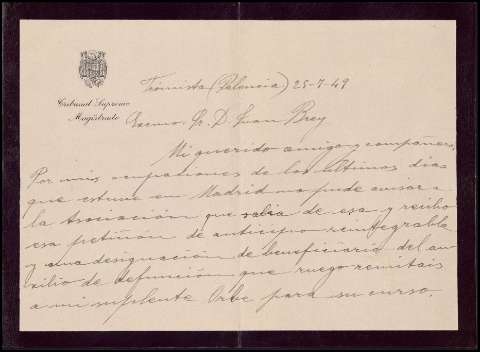 Tribunal Supremo
Magistrado
Frómista (Palencia) 25-7-49
Excmo. Sr. D. Juan Brey
Mi querido amigo y compañero,
Por mis ocupaciones de los últimos días
que estuve en Madrid no pude avisar a
la Asociación que salía de esa y recibo
esa petición de anticipo reintegrable
y una designación de beneficiario del au-
xilio de defunción que ruego remitais
a mi suplente Orbe para su curso.